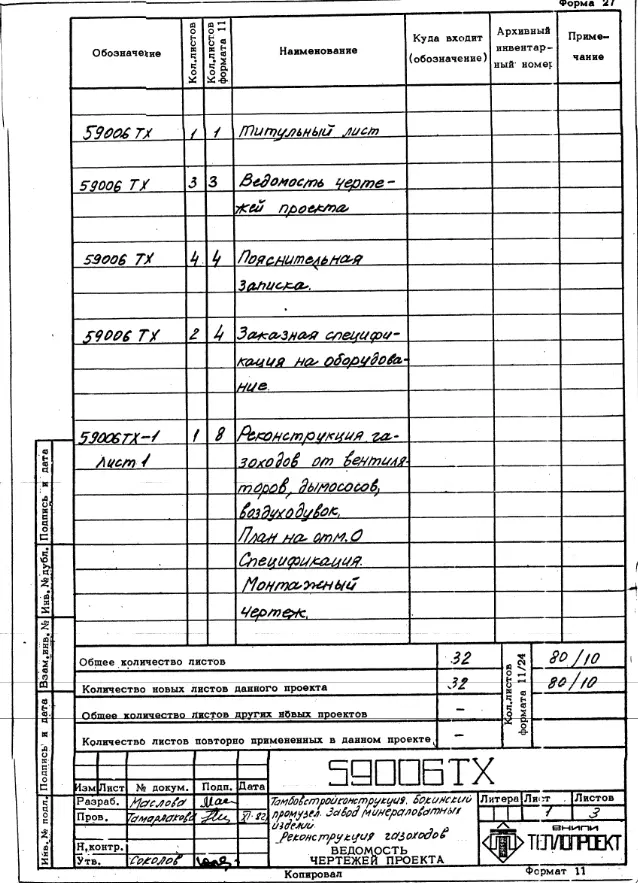 Форма 27
Обозначение Кол.листов Кол.листов формата 11 Наименование Куда входит (обозначение) Архивный инвентарный номер Примечание
59006 ТХ 1 1 Титульный лист
59006 ТХ 3 3 Ведомость черте-
жей проекта
59006 ТХ 4 4 Пояснительная
записка.
59006 ТХ 2 4 Заказная специфи-
кация на оборудова-
ние
59006ТХ-1 1 8 Реконструкция га-
Лист 1 зоходов от вентиля-
торов, дымососов,
воздуходувок.
План на отм. 0
Спецификация.
Монтажный
чертеж.
Общее количество листов 32 Кол.листов формата 11/24 80/10
Количество новых листов данного проекта 32 80/10
Общее количество листов других новых проектов –
Количество листов повторно примененных в данном проекте –
Инв.№ подл. Подпись и дата Взам.инв.№ Инв.№ дубл. Подпись и дата
59006ТХ
Изм Лист № докум. Подп. Дата
Разраб. Маслова
Пров. XI-82
Н.контр.
Утв. Соколов
Тамбовстройконструкция. Бокинский
промузел. Завод минераловатных
изделий.
Реконструкция газоходов
ВЕДОМОСТЬ
ЧЕРТЕЖЕЙ ПРОЕКТА
Литера Лист Листов
1 3
ВНИПИ
ТЕПЛОПРОЕКТ
Копировал Формат 11